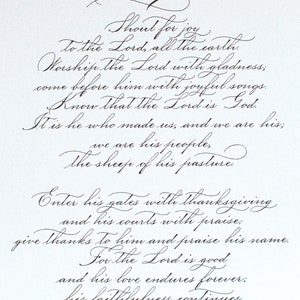 Shout for joy
to the Lord, all the earth.
Worship the Lord with gladness;
come before him with joyful songs.
Know that the Lord is God.
It is he who made us, and we are his;
we are his people,
the sheep of his pasture.
Enter his gates with thanksgiving
and his courts with praise;
give thanks to him and praise his name.
For the Lord is good
and his love endures forever;
his faithfulness continues